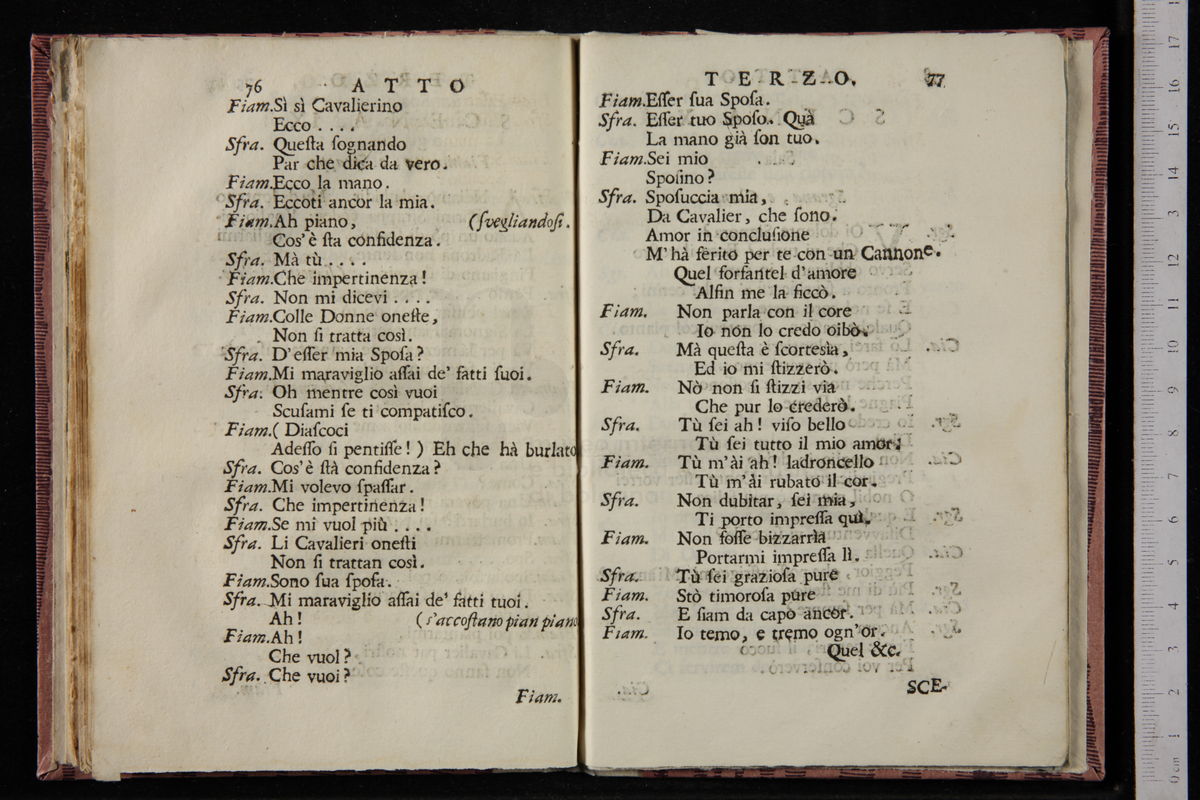 76 ATTO
Fiam. Sì sì Cavalierino
Ecco . . . .
Sfra. Queſta ſognando
Par che dica da vero.
Fiam. Ecco la mano.
Sfra. Eccoti ancor la mia.
Fiam. Ah piano, (ſvegliandoſi.
Cos' è ſta confidenza.
Sfra. Mà tù . . . .
Fiam. Che impertinenza!
Sfra. Non mi dicevi . . . .
Fiam. Colle Donne oneſte,
Non ſi tratta così.
Sfra. D'eſſer mia Spoſa?
Fiam. Mi maraviglio aſſai de' fatti ſuoi.
Sfra. Oh mentre così vuoi
Scuſami ſe ti compatiſco.
Fiam. ( Diaſcoci
Adeſſo ſi pentiſſe! ) Eh che hà burlato
Sfra. Cos'è ſtà confidenza?
Fiam. Mi volevo ſpaſſar.
Sfra. Che impertinenza!
Fiam. Se mi vuol più . . . .
Sfra. Li Cavalieri oneſti
Non ſi trattan così.
Fiam. Sono ſua ſpoſa.
Sfra. Mi maraviglio aſſai de' fatti tuoi.
Ah! ( s'accoſtano pian piano
Fiam. Ah!
Che vuol?
Sfra. Che vuoi?
Fiam.
TERZO. 77
Fiam. Eſſer ſua Spoſa.
Sfra. Eſſer tuo Spoſo. Quà
La mano già ſon tuo.
Fiam. Sei mio
Spoſino?
Sfra. Spoſuccia mia,
Da Cavalier, che ſono.
Amor in concluſione
M' hà ferito per te con un Cannone.
Quel forfantel d'amore
Alfin me la ficcò.
Fiam. Non parla con il core
Io non lo credo oibò.
Sfra. Mà queſta è ſcortesìa,
Ed io mi ſtizzerò.
Fiam. Nò non ſi ſtizzi via
Che pur lo crederò.
Sfra. Tù ſei ah! viſo bello
Tù ſei tutto il mio amor;
Fiam. Tù m'ài ah! ladroncello
Tù m'ài rubato il cor.
Sfra. Non dubitar, ſei mia,
Ti porto impreſſa quì.
Fiam. Non foſſe bizzarrìa
Portarmi impreſſa lì.
Sfra. Tù ſei grazioſa pure
Fiam. Stò timoroſa pure
Sfra. E ſiam da capo ancor.
Fiam. Io temo, e tremo ogn'or.
Quel &c.
SCE-